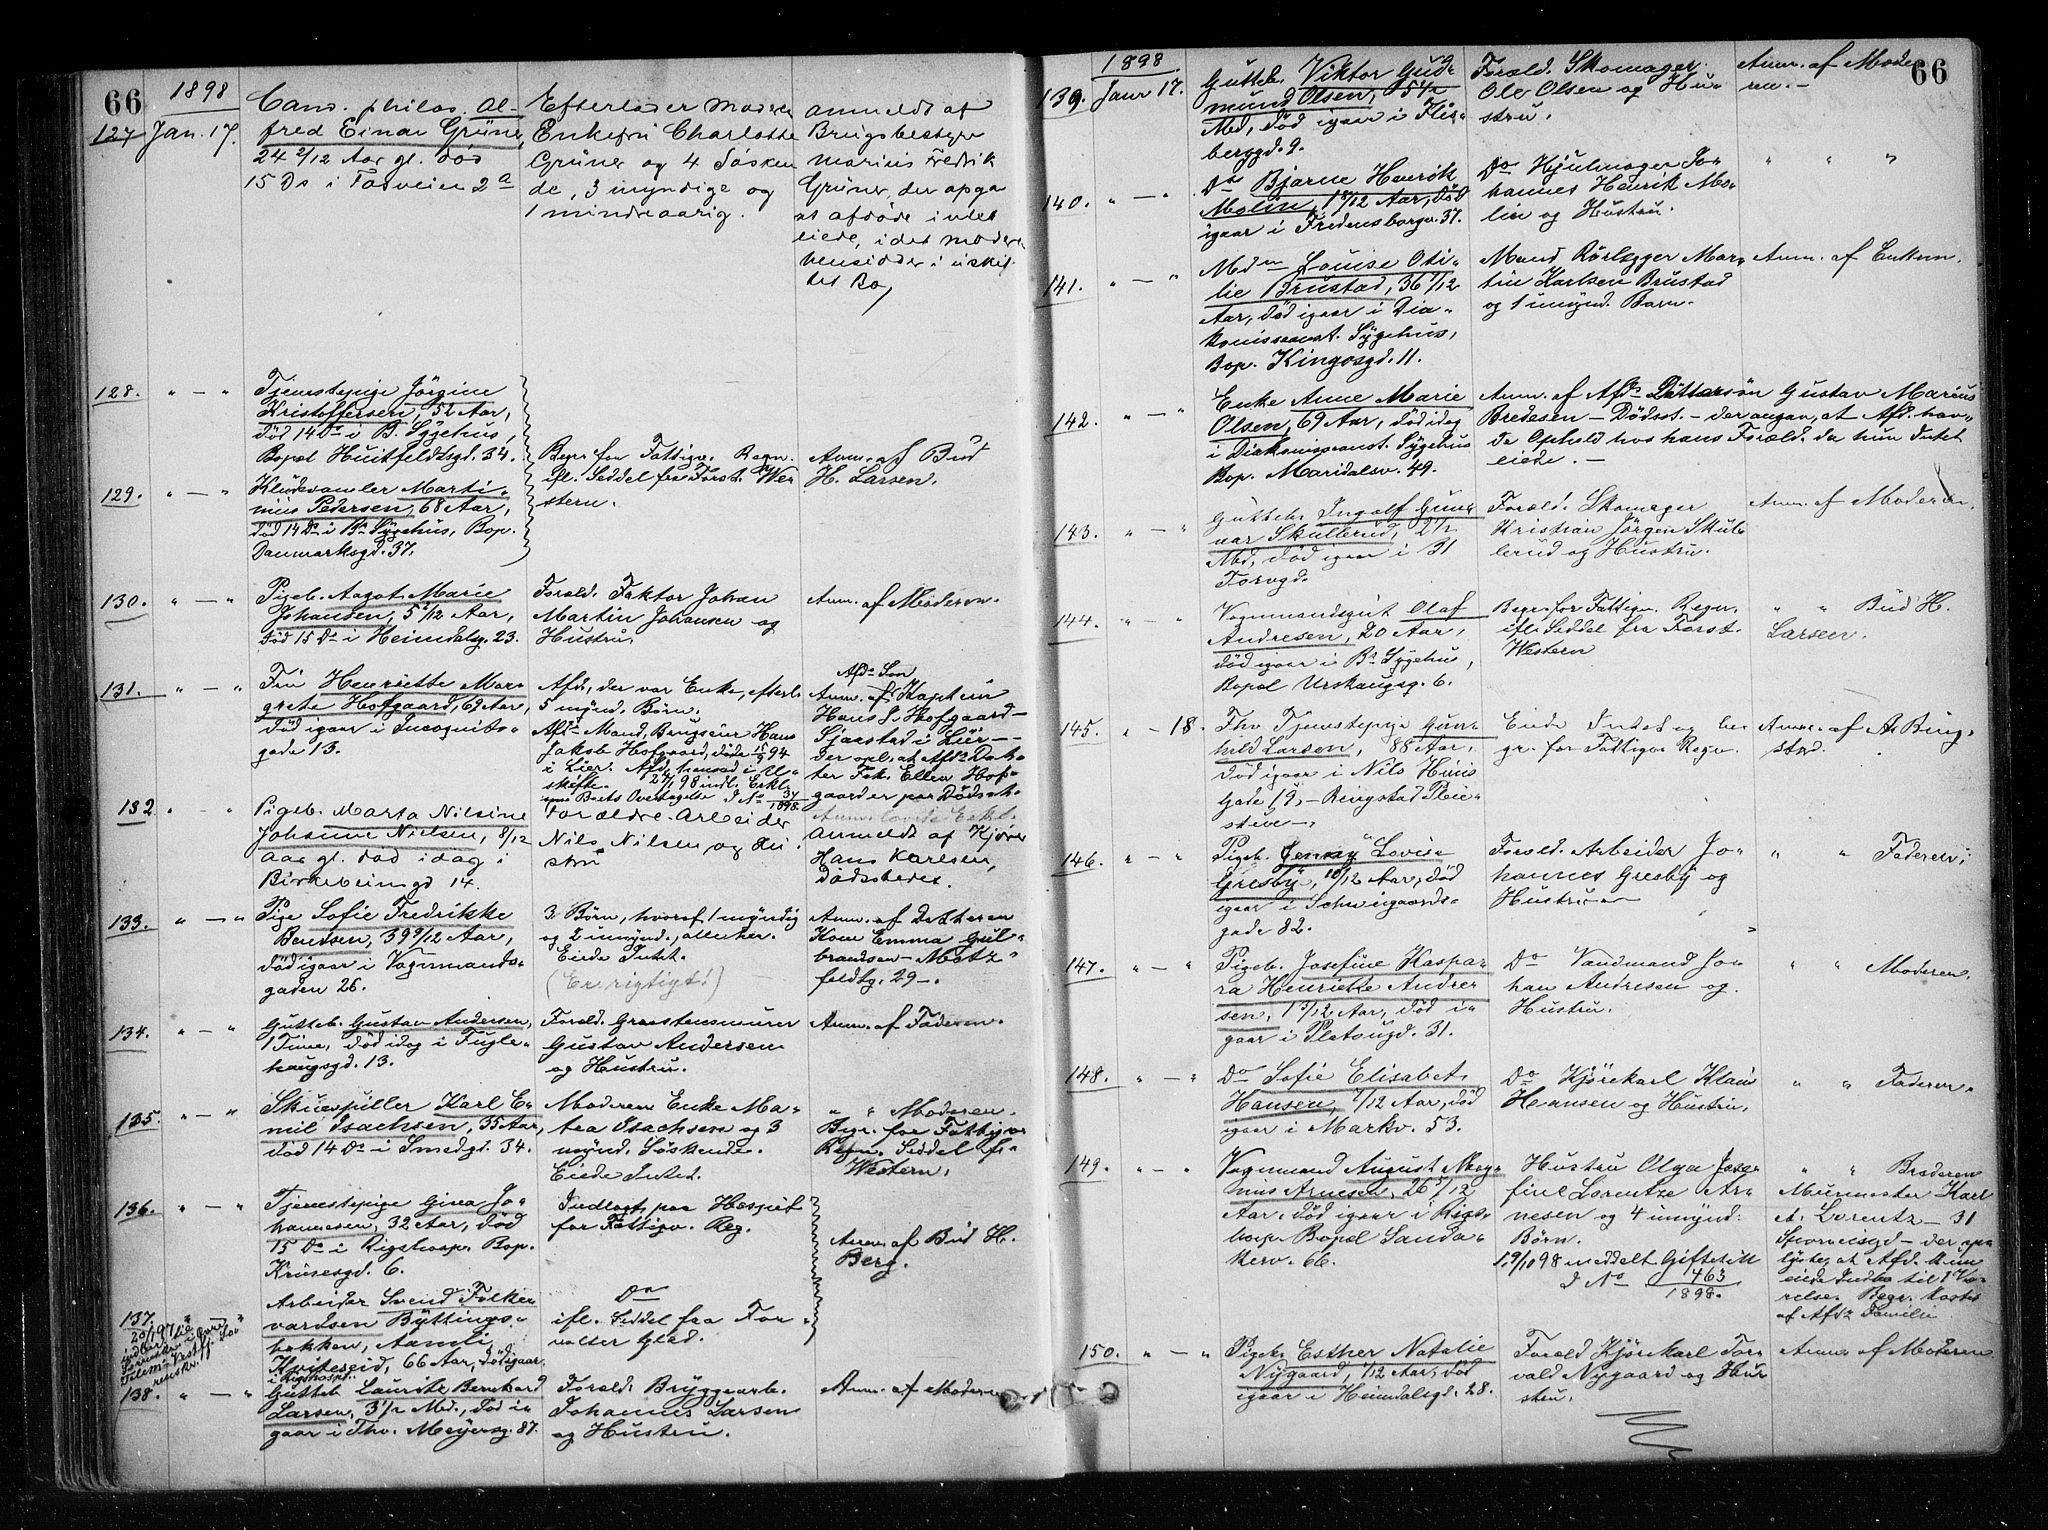 66
1898
127 Jan. 17.
Cand. philos. Al-
fred Einar Grüner,
24 2/12 Aar gl. død
15 Ds i Fosveien 2a
Efterlader Moderen
Enkefru Charlotte
Grüner og 4 Søsken
de, 3 myndige og
1 mindreaarig.
anmeldt af
Brugsbestyrer
Marius Fredrik
Grüner, der opga
at afdøde intet
eiede, idet moderen
hensidder i uskif-
tet Bo,
128. " — "
Tjenestepige Jörgine
Kristoffersen, 52 Aar,
død 14 Ds i B. Sygehus,
Bopæl Huitfeldtsgd. 34.
Begr. for Fattigv. Regn.
ifl. Seddel fra Forst. We-
stern.
Anm. af Bud
H. Larsen.
129. " — "
Kludesamler Marti-
nus Pedersen, 68 Aar,
død 14 Ds i Bs Sygehus, Bop.
Danmarksgd. 37.
130. " — "
Pigeb. Aagot Marie
Johansen, 5 2/12 Aar,
død 15 Ds i Heimdalsg. 23.
Foræld. Faktor Johan
Martin Johansen og
Hustru.
Anm. af Moderen.
131. " — "
Fru Henriette Mar-
grete Hofgaard, 69 Aar,
død igaar i Incognito-
gade 13.
Afd., der var Enke, efterl.
5 mynd. Børn.
Afds Mand, Brugseier Hans
Jakob Hofgaard, døde 15/9 94
i Lier. Afd. hensad i U-
skifte.
27/1 98 indl. Erkl.
Boets Overtagelse J No 34/1898.
Afds Søn
Anm. af Kaptein
Hans J. Hofgaard —
Sjaastad i Lier —
der opl. at Afds Dat-
ter Frk. Ellen Hof-
gaard er paa Dødsst.
Anm. lovede Erkl.
132 " "
Pigeb. Marta Nilsine
Johanne Nielsen, 8/12
Aar gl. død idag i
Birkebeinsgd 14.
Forældre Arbeider
Nils Nilsen og Hu-
stru
Anmeldt af Kjører
Hans Karlsen,
Dødsstedet.
133. " — "
Pige Sofie Fredrikke
Bendsen, 39 9/12 Aar,
død igaar i Vognmands-
gaden 26.
3 Børn, hvoraf 1 myndig
og 2 umynd., alle her.
Eiede Intet.
(Er rigtigt!)
Anm. af Datteren
Kone Emma Gul-
brandsen — Motz-
feldtg. 29 —.
134. " — "
Gutteb. Gustav Andersen,
1 Time, død idag i Fugle-
haugsgd. 13.
Foræld. Graastensmurer
Gustav Andersen
og Hustru.
Anm. af Faderen.
135. " — "
Skuespiller Karl E-
mil Isachsen, 35 Aar,
død 14 Ds i Smedgt. 34.
Moderen Enke Ma-
tea Isachsen og 3
mynd. Søskende.
Eiede Intet.
" " Moderen.
Begr. for Fattigv.
Regn. Seddel fr.
Western.
136. " — "
Tjenestepige Gina Jo-
hannesen, 32 Aar, død
15 Ds i Rigshosp. Bop.
Krusesgd. 6.
Indlagt paa Hospit.
for Fattigv. Reg.
Anm. af Bud H.
Berg.
137. " "
Arbeider Svend Folke-
vardsen Byttings-
bakken, Aamli,
Kviteseid, 66 Aar, død igaar
i Rigshosp.
Do
ifl. Seddel fra For-
valter Glad.
138. " — "
Gutteb. Lauritz Bernhard
Larsen, 3 1/2 Md., død i-
gaar i Thv. Meyersg. 87.
Foræld. Bryggearb.
Johannes Larsen
og Hustru.
Anm. af Moderen
66
1898
139. Janr 17.
Gutteb. Viktor Gud-
mund Olsen, 5 1/2
Md, død igaar i Flis-
berggd. 9.
Foræld. Skomager
Ole Olsen og Hu-
stru.
Anm. af Mode-
ren. —
140. " — "
Do Bjarne Henrik
Molin, 1 8/12 Aar, død
igaar i Fredensborgv. 37.
Do Hjulmager Jo-
hannes Henrik Mo-
lin og Hustru.
" " "
141. " — "
Mdm Louise Oti-
lie Brustad, 36 7/12
Aar, død igaar i Dia-
konisseanst. Sygehus,
Bop. Kingosgd. 11.
Mand Rørlægger Mar-
tin Karlsen Brustad
og 1 umynd. Barn.
Anm. af Enkem.
142. " — "
Enke Anne Marie
Olsen, 69 Aar, død idag
i Diakonisseanst. Sygehus
Bop. Maridalsv. 49.
Anm. af Afds Dattersøn Gustav Marius
Bredesen — Dødsst. — der angav, at Afd. hav-
de Ophold hos hans Foræld. da hun Intet
eiede. —
143. " — "
Gutteb. Ingolf Gun-
nar Skullerud, 2 1/2
Md, død igaar i 31
Torvgd.
Foræld. Skomager
Kristian Jörgen Skul-
lerud og Hustru.
Anm. af Moderen.
144. " — "
Vognmandsgut Olaf
Andresen, 20 Aar,
død igaar i Bs Sygehus,
Bopæl Urskougsg. 6.
Begr. for Fattigv. Regn.
ifl. Seddel fra Forst.
Western
" " Bud H.
Larsen.
145. " — 18.
Fhv. Tjenestepige Gun-
hild Larsen, 88 Aar,
død igaar i Nils Huus
Gade 19, — Ringstad Pleie-
stue —.
Eiede Intet og be-
gr. for Fattigv. Regn.
Anm. af A Ring-
stad.
146. " — "
Pigeb. Jenny Lovise
Gresby, 10/12 Aar, død
igaar i Schweigaards-
gade 82.
Foræld. Arbeider Jo-
hannes Gresby og
Hustru —
" " Faderen,
147. " — "
Pigeb. Josefine Kaspa-
ra Henriette Andre-
sen, 1 3/12 Aar, død i-
gaar i Platougd. 31.
Do Vandmand Jo-
han Andresen og
Hustru.
" " Moderen.
148. " — "
Do Sofie Elisabet
Hansen, 7/12 Aar, død
igaar i Markv. 53.
Do Kjørekarl Klaus
Hansen og Hustru,
" " Faderen.
149. " — "
Vognmand August Mag-
nus Arnesen, 26 5/12
Aar, død igaar i Rigs-
hosp. Bopæl Sanda-
kerv. 66.
Hustru Olga Jose-
fine Lorentze Ar-
nesen og 4 umynd.
Børn.
19/10 98 meddelt Gifteatt.
J No 463/1898.
" " Broderen
Murmester Karl
A. Lorentz — 31
— der op-
lyste, at Afd. kun
eiede Indbo til
Begr. kostes
af Afds Familie
150. " — "
Pigeb. Esther Natalie
Nygaard, 1/12 Aar, død
igaar i Heimdalsgd. 28.
Foræld Kjørekarl Tor-
vald Nygaard og Hu-
stru.
Anm. af Moderen